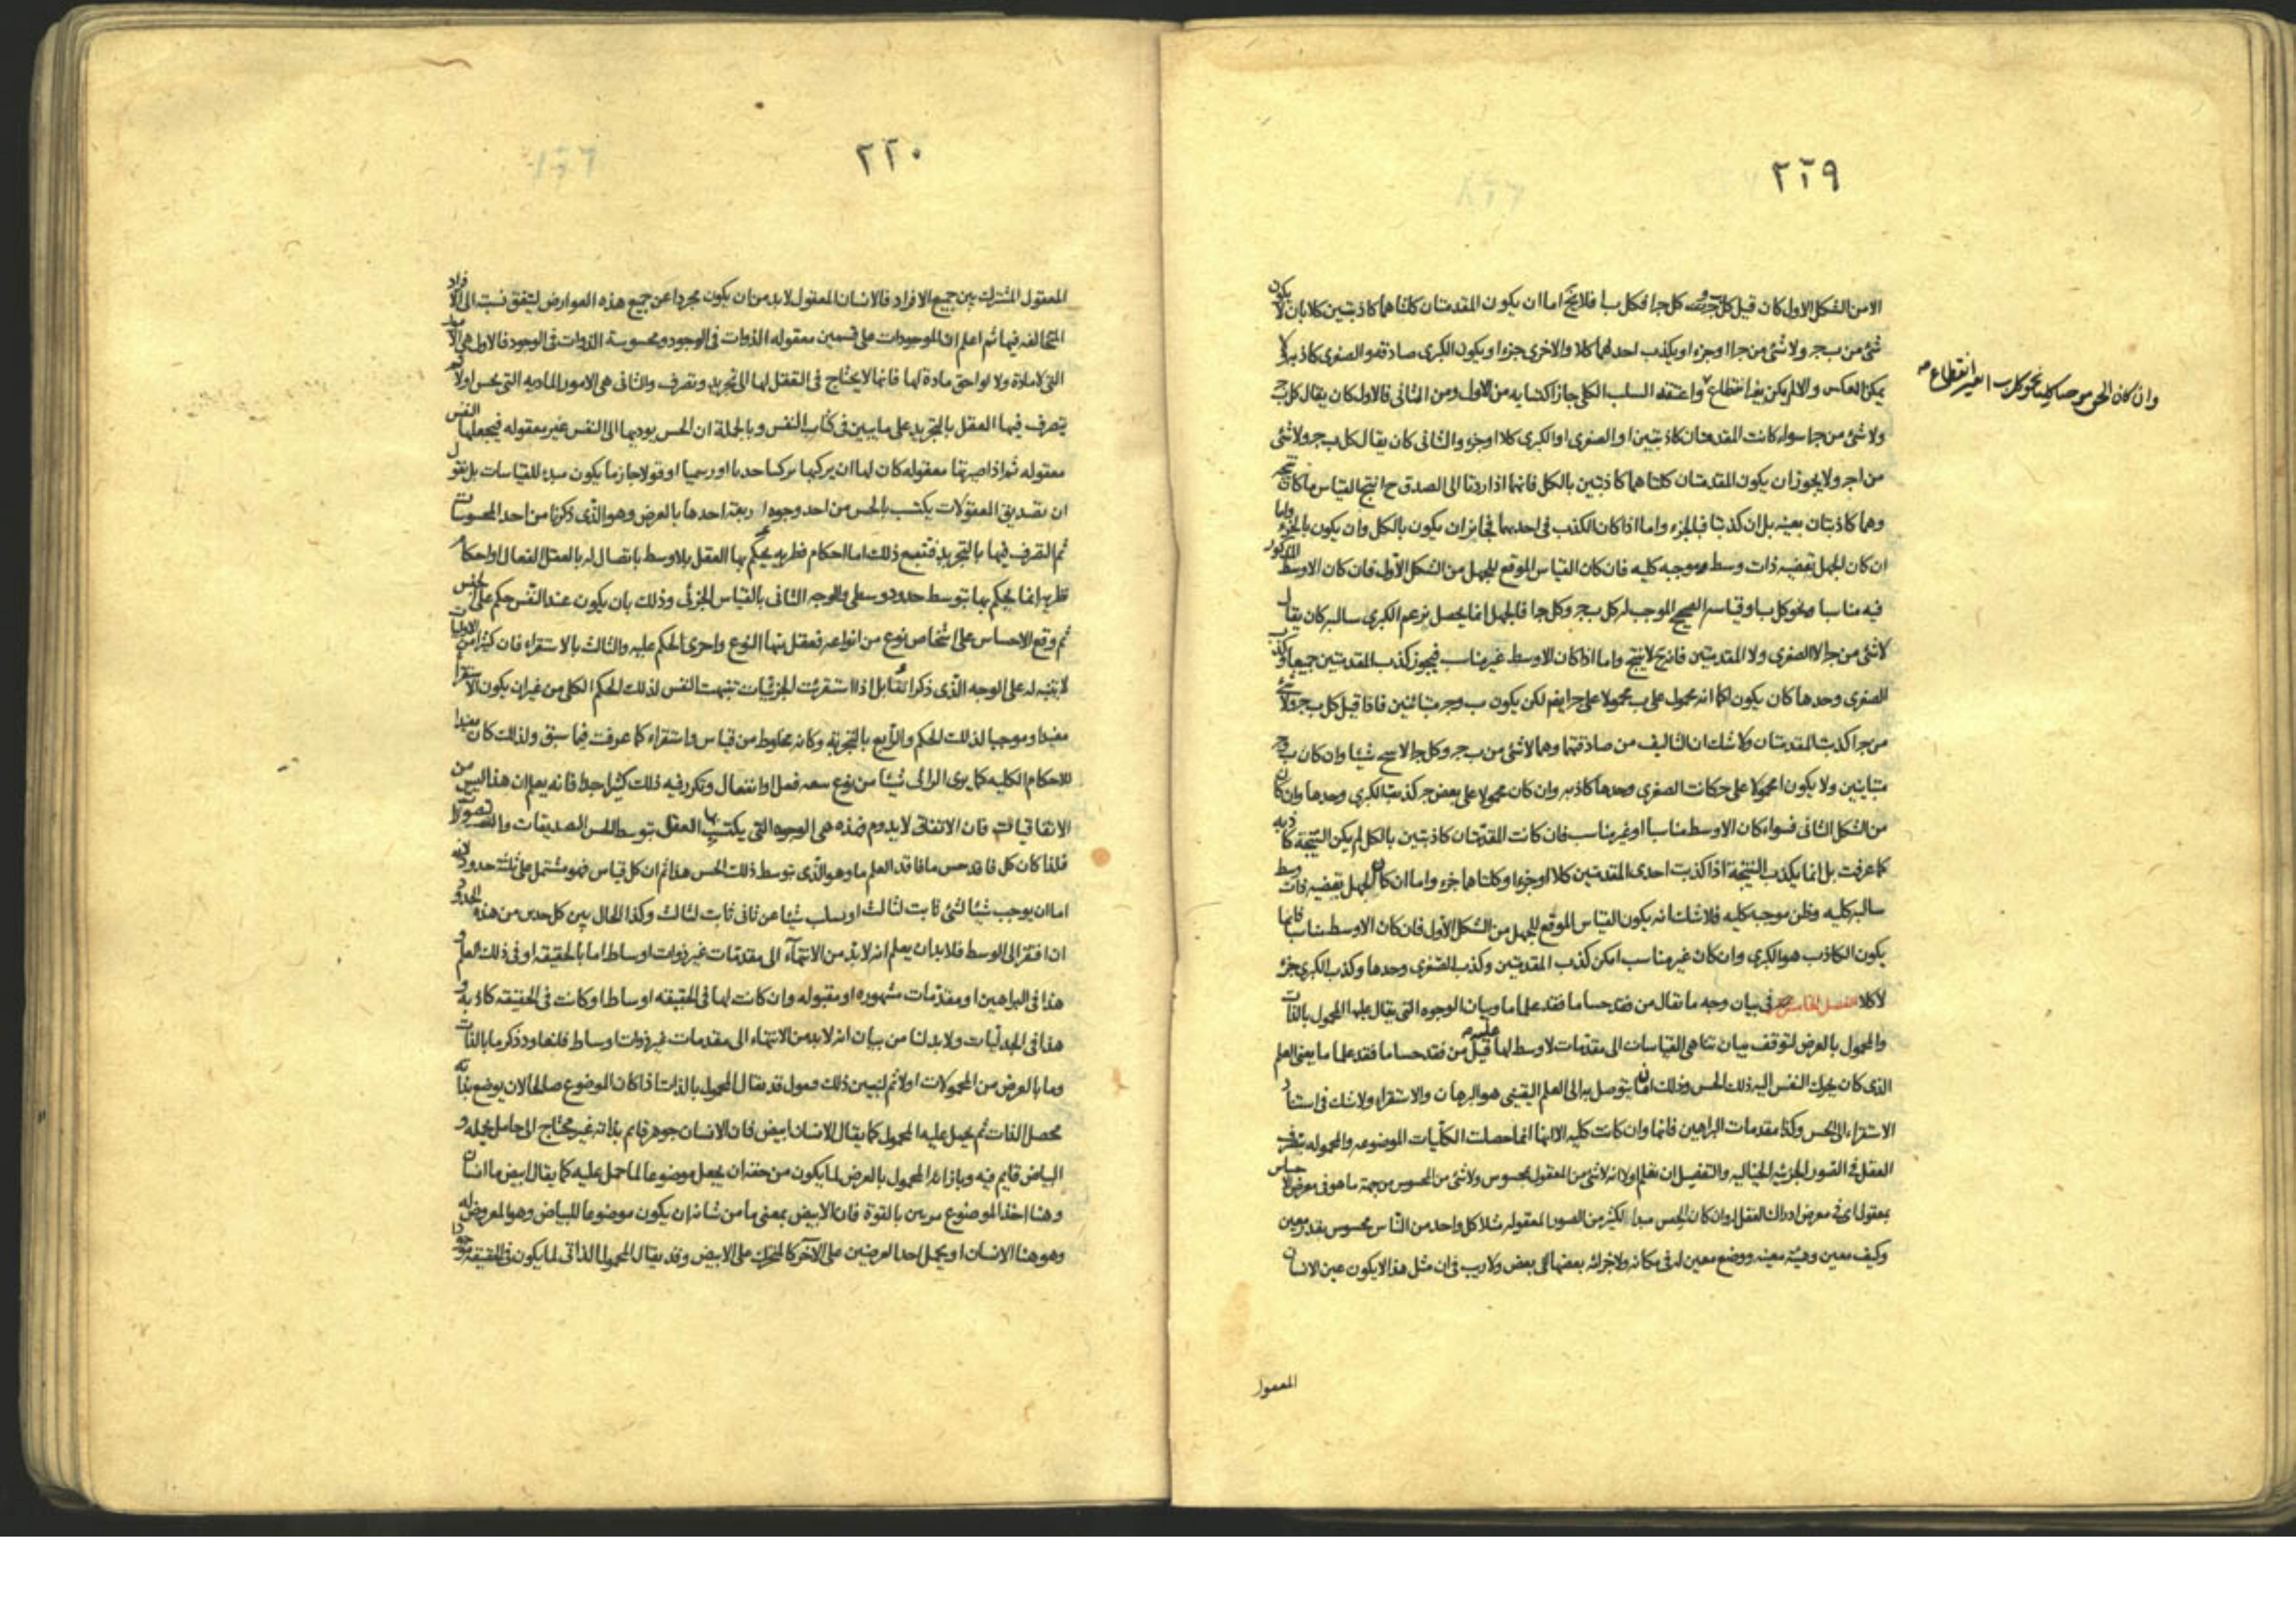 ٢٢٩
الا من الشكل الاول كان قيل كل ج ب كل ج ا فكل ب ا فلا يخ اما ان يكون المقدمتان كلتاهما كاذبتين كلا بان لا يكون
شئ من ب ج ولا شئ من ج ا او جزءا ويكذب احدلهما كلا والاخرى جزءا ويكون الكبرى صادقه والصغرى كاذبه ولا
يمكن العكس والا لم يكن بغير انقطاع واعتقد السلب الكلى جاز اكتسابه من الاول ومن الثانى فالاول كان يقال كل ب ج
وان كان الحق موجبا كليا نحو كل ب ا بغير انقطاع صح
ولا شئ من ج ا سواء كانت المقدمتان كاذبتين او الصغرى او الكبرى كلا او جزء والثانى كان يقال كل ب ج ولا شئ
من ا ج ولا يجوز ان يكون المقدمتان كلتاهما كاذبتين بالكل فانهما اذا ردتا الى الصدق ح انتج القياس ما كانت تنتجه
وهما كاذبتان بعينه بل ان كذبتا فبالجزء واما اذا كان الكذب فى احديهما فجايز ان يكون بالكل وان يكون بالجزء واما
ان كان الجهل بقضيه ذات وسط وموجبه كليه فان كان القياس الموقع للجهل من الشكل الاول فان كان الاوسط المذكور
فيه مناسبا ونحو كل ب ا وقياسه الصحيح الموجب له كل ب ج وكل ج ا فالجهل انما يحصل بزعم الكبرى سالبه كان يقال
لا شئ من ج ا لا الصغرى ولا المقدمتين فانه ح لا ينتج واما اذا كان الاوسط غير مناسب فيجوز كذب المقدمتين جميعا وكذب
الصغرى وحدها كان يكون ا كما انه محمول على ب محمولا على ج ايضا لكن يكون ب و ج متباينين فاذا قيل كل ب ج ولا شئ
من ج ا كذبت المقدمتان ولا شك ان التاليف من صادقتهما وهما لا شئ من ب ج وكل ج ا لا ينتج شيئا وان كان ب و ج
متباينين ولا يكون ا محمولا على ج كانت الصغرى وحدها كاذبه وان كان محمولا على بعض ج كذبت الكبرى وحدها وان كان
من الشكل الثانى فسواء كان الاوسط مناسبا او غير مناسب فان كانت المقدمتان كاذبتين بالكل لم يكن النتيجة كاذبه
كما عرفت بل انما يكذب النتيجة اذا كذبت احدى المقدمتين كلا او جزءا وكلتاهما جزء واما ان كان الجهل بقضيه ذات وسط
سالبه كليه وظن موجبه كليه فلا شك انه يكون القياس الموقع للجهل من الشكل الاول فان كان الاوسط مناسبا فانما
يكون الكاذب هو الكبرى وان كان غير مناسب امكن كذب المقدمتين وكذب الصغرى وحدها وكذب الكبرى جزء
لا كلا الفصل الخامس فى بيان وجه ما يقال من فقد حسا ما فقد علما ما وبيان الوجوه التى يقال عليها المحمول بالذات
والمحمول بالعرض لتوقف بيان تناهى القياسات الى مقدمات لا وسط لها عليه قيل من فقد حسا ما فقد علما ما يعنى العلم
الذى كان يحرك النفس اليه ذلك الحس وذلك ان ما يتوصل به الى العلم اليقينى هو البرهان والاستقراء ولا شك فى استناد
الاستقراء الى الحس وكذا مقدمات البراهين فانها وان كانت كليه الا انها انما حصلت الكليات الموضوعه والمحموله بتصرف
العقل فى الصور الجزئيه الخياليه والتفصيل ان نعلم اولا انه لا شئ من المعقول بمحسوس ولا شئ من المحسوس من جهة ما هو فى معرض الاحساس
بمعقول اى فى معرض ادراك العقل له وان كان الحس مبدا لكثير من الصور المعقوله مثلا كل واحد من الناس محسوس بقدر معين
وكيف معين وهيئه معينه ووضع معين له فى مكانه ولاجزائه بعضها الى بعض ولا ريب فى ان مثل هذا لا يكون عين الانسان
المعقول
٢٢٠
المعقول المشترك بين جميع الافراد فالانسان المعقول لا بد من ان يكون مجردا عن جميع هذه العوارض ليتفق نسبته الى الافراد
المتخالفه فيها ثم اعلم ان الموجودات على قسمين معقوله الذوات فى الوجود ومحسوسة الذوات فى الوجود فالاول هى الامور
التى لا مادة ولا لواحق مادة لها فانها لا يحتاج فى التعقل لها الى تجريد وتصرف والثانى هى الامور الماديه التى يحس اولا ثم
يتصرف فيها العقل بالتجريد على ما يبين فى كتاب النفس وبالجملة ان الحس يوديها الى النفس غير معقوله فيجعلها النفس
معقوله ثم اذا صيرتها معقوله كان لها ان يركبها تركيبا حديا او رسميا او قولا جازما يكون مبدء للقياسات بل نقول
ان تصديق المعقولات يكتسب بالحس من احد وجوه اربعة احدها بالعرض وهو الذى ذكرنا من اخذ المحسوسات
ثم التصرف فيها بالتجريد فتتبع ذلك اما احكام فطريه يحكم بها العقل بلا وسط باتصال له بالعقل الفعال او احكام
فطريه انما يحكم بها بتوسط حدود وسطى والوجه الثانى بالقياس الجزئى وذلك بان يكون عند النفس حكم على الجنس
ثم وقع الاحساس على اشخاص نوع من انواعه فعقل منها النوع واجرى الحكم عليه والثالث بالاستقراء فان كثيرا من الاوليات
لا يتنبه له على الوجه الذى ذكرا نفا بل اذا استقريت الجزئيات تنبهت النفس لذلك الحكم الكلى من غير ان يكون الاستقراء
مفيدا وموجبا لذلك الحكم والرابع بالتجربة وكانه مخلوط من قياس واستقراء كما عرفت فيما سبق ولذلك كان مفيدا
للاحكام الكليه كما يرى الرائى شيئا من نوع سعه فعل او انفعال وتكرر فيه ذلك كثيرا جدا فانه يعلم ان هذا ليس من
الاتفاقيات فان الاتفاقى لا يدوم فهذه هى الوجوه التى يكتسب بها العقل بتوسط الحس التصديقات والتصورات
فلذا كان كل فاقد حس ما فاقد العلم ما وهو الذى بتوسط ذلك الحس هذا ثم ان كل قياس فهو مشتمل على ثلثه حدود لانه
اما ان يوجب شيئا لشئ ثابت لثالث او يسلب شيئا عن ثانى ثابت لثالث وكذا الحال بين كل حدين من هذه الحدود
ان افتقر الى الوسط فلا بد ان يعلم انه لا بد من الانتهاء الى مقدمات غير ذوات اوساط اما بالحقيقه او فى ذلك العلم و
هذا فى البراهين او مقدمات مشهوره او مقبوله وان كانت لها فى الحقيقه اوساط او كانت فى الحقيقه كاذبه و
هذا فى الجدليات ولا بد لنا من بيان انه لا بد من الانتهاء الى مقدمات غير ذوات اوساط فلنعاود ذكر ما بالذات
وما بالعرض من المحمولات اولا ثم لنبين ذلك فنقول قد يقال المحمول بالذات اذا كان الموضوع صالحا لان يوضع بذاته
محصل الذات ثم يحمل عليه المحمول كما يقال الانسان ابيض فان الانسان جوهر قايم بذاته غير محتاج الى حامل يحمله و
البياض قايم فيه وبازائه المحمول بالعرض لما يكون من حقه ان يجعل موضوعا لما حمل عليه كما يقال ابيض ما انسان
وهنا اخذ الموضوع مرتين بالقوة فان الابيض بمعنى ما من شانه ان يكون موضوعا للبياض وهو المعروض له
وهو هنا الانسان او يحمل احد العرضين على الآخر كالمتحرك على الابيض وقد يقال المحمول الذاتى لما يكون فى الحقيقه